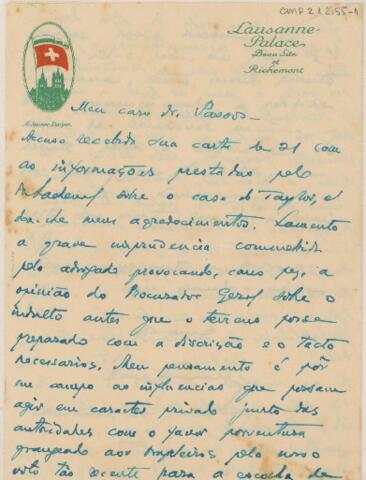 CMP.2.1.2.155-1
Lausanne-
Palace
Beau Site
et
Richemont
Meu caro Dr. Passos -
Accuso recebida sua carta de 21 com
as informações prestadas pelo
sobre o caso do Taylor, e
dou-lhe meus agradecimentos. Lamento
a grave imprudencia commettida
pelo advogado provocando, como fez, a
opinião do Procurador Geral sobre o
indulto antes que o terreno fosse
preparado com a discrição e o tacto
necessarios. Meu pensamento é pôr
em campo as influencias que possam
agir em caracter privado junto das
autoridades com o favor porventura
grangeado aos brasileiros pelo nosso
voto tão recente para a escolha de